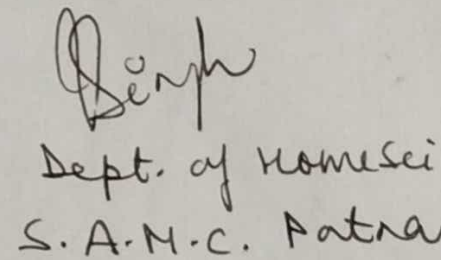 Singh
Dept. of Homesci
S.A.M.C. Patna